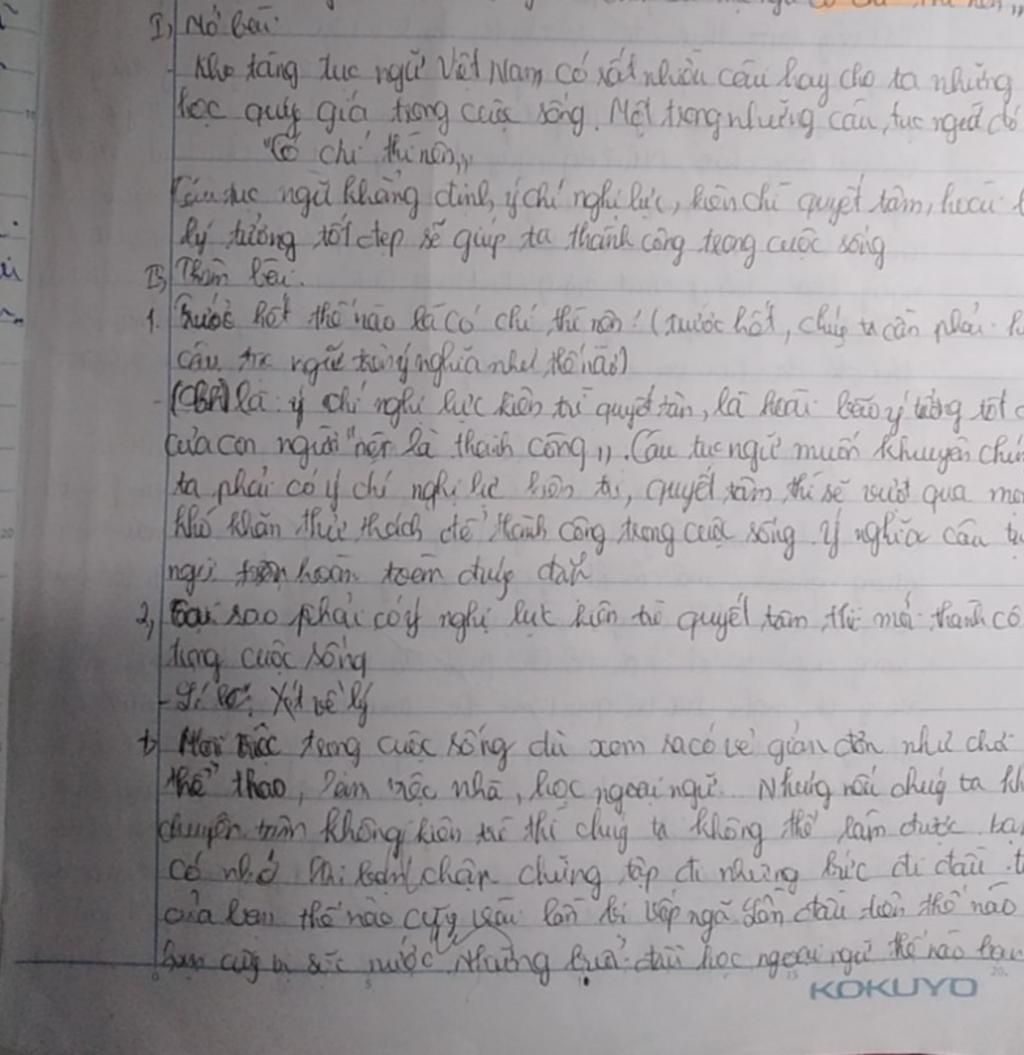 I, Mở bài:
- Kho tàng tục ngữ Việt Nam có rất nhiều câu hay cho ta những
học quý giá trong cuộc sống. Một trong những câu tục ngữ đó
"Có chí thì nên"
Câu tục ngữ khẳng định ý chí nghị lực, kiên chì quyết tâm, hoài
lý tưởng tốt đẹp sẽ giúp ta thành công trong cuộc sống
II, Thân bài.
1. Trước hết thế nào là có chí thì nên! (Trước hết, chúng ta cần phải
câu tục ngữ ý nghĩa như thế nào)
- là ý chí nghị lực kiên trì quyết tâm, là hoài bão ý tưởng tốt
của con người "nên là thành công". Câu tục ngữ muốn khuyên
ta phải có ý chí nghị lực kiên trì, quyết tâm thì sẽ vượt qua
khó khăn thử thách để thành công trong cuộc sống. Ý nghĩa câu
ngữ hoàn toàn đúng đắn
2, Tại sao phải có ý nghị lực kiên trì quyết tâm thì mới thành
trong cuộc sống
- Xét về lý
+ Mọi việc trong cuộc sống dù xem ra có vẻ giản đơn như chơi
thể thao, làm việc nhà, học ngoại ngữ. Nhưng nếu chúng ta
chuyên tâm không kiên trì thì chúng ta không thể làm được.
có nhớ khi chập chững tập đi những bước đi đầu
của bạn thế nào cũng lần bị vấp ngã lần đầu tiên thế nào
bạn cũng bị sặc nước Những buổi đầu học ngoại ngữ thế nào bạn
KOKUYO